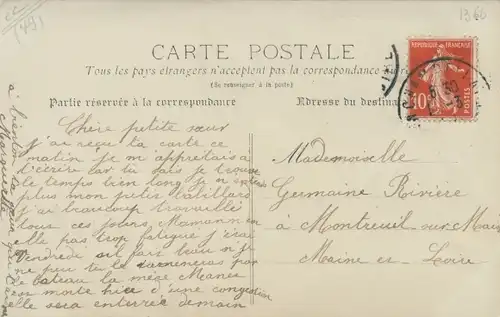 (49)
13.60
CARTE POSTALE
Tous les pays étrangers n'acceptent pas la correspondance au
(Se renseigner à la poste)
Partie réservée à la correspondance
Adresse du destina
RÉPUBLIQUE FRANÇAISE
10
POSTES
Chère petite sœur
j'ai reçu la carte ce
matin je m'apprêtais à
t'écrire car tu sais je trouve
le temps bien long je n'entends
plus mon petit babillard
j'ai beaucoup travaillé
tous ces jours Maman n'en
elle pas trop fatigué j'irai
Vendredi s'il fait beau si je
ne peu te la ramènerai par
le bateau la mère
est morte hier d'une congestion
elle sera enterrée demain
à bientôt
Marguerite
Mademoiselle
Germaine Rivière
à Montreuil-sur-Maine
Maine et Loire